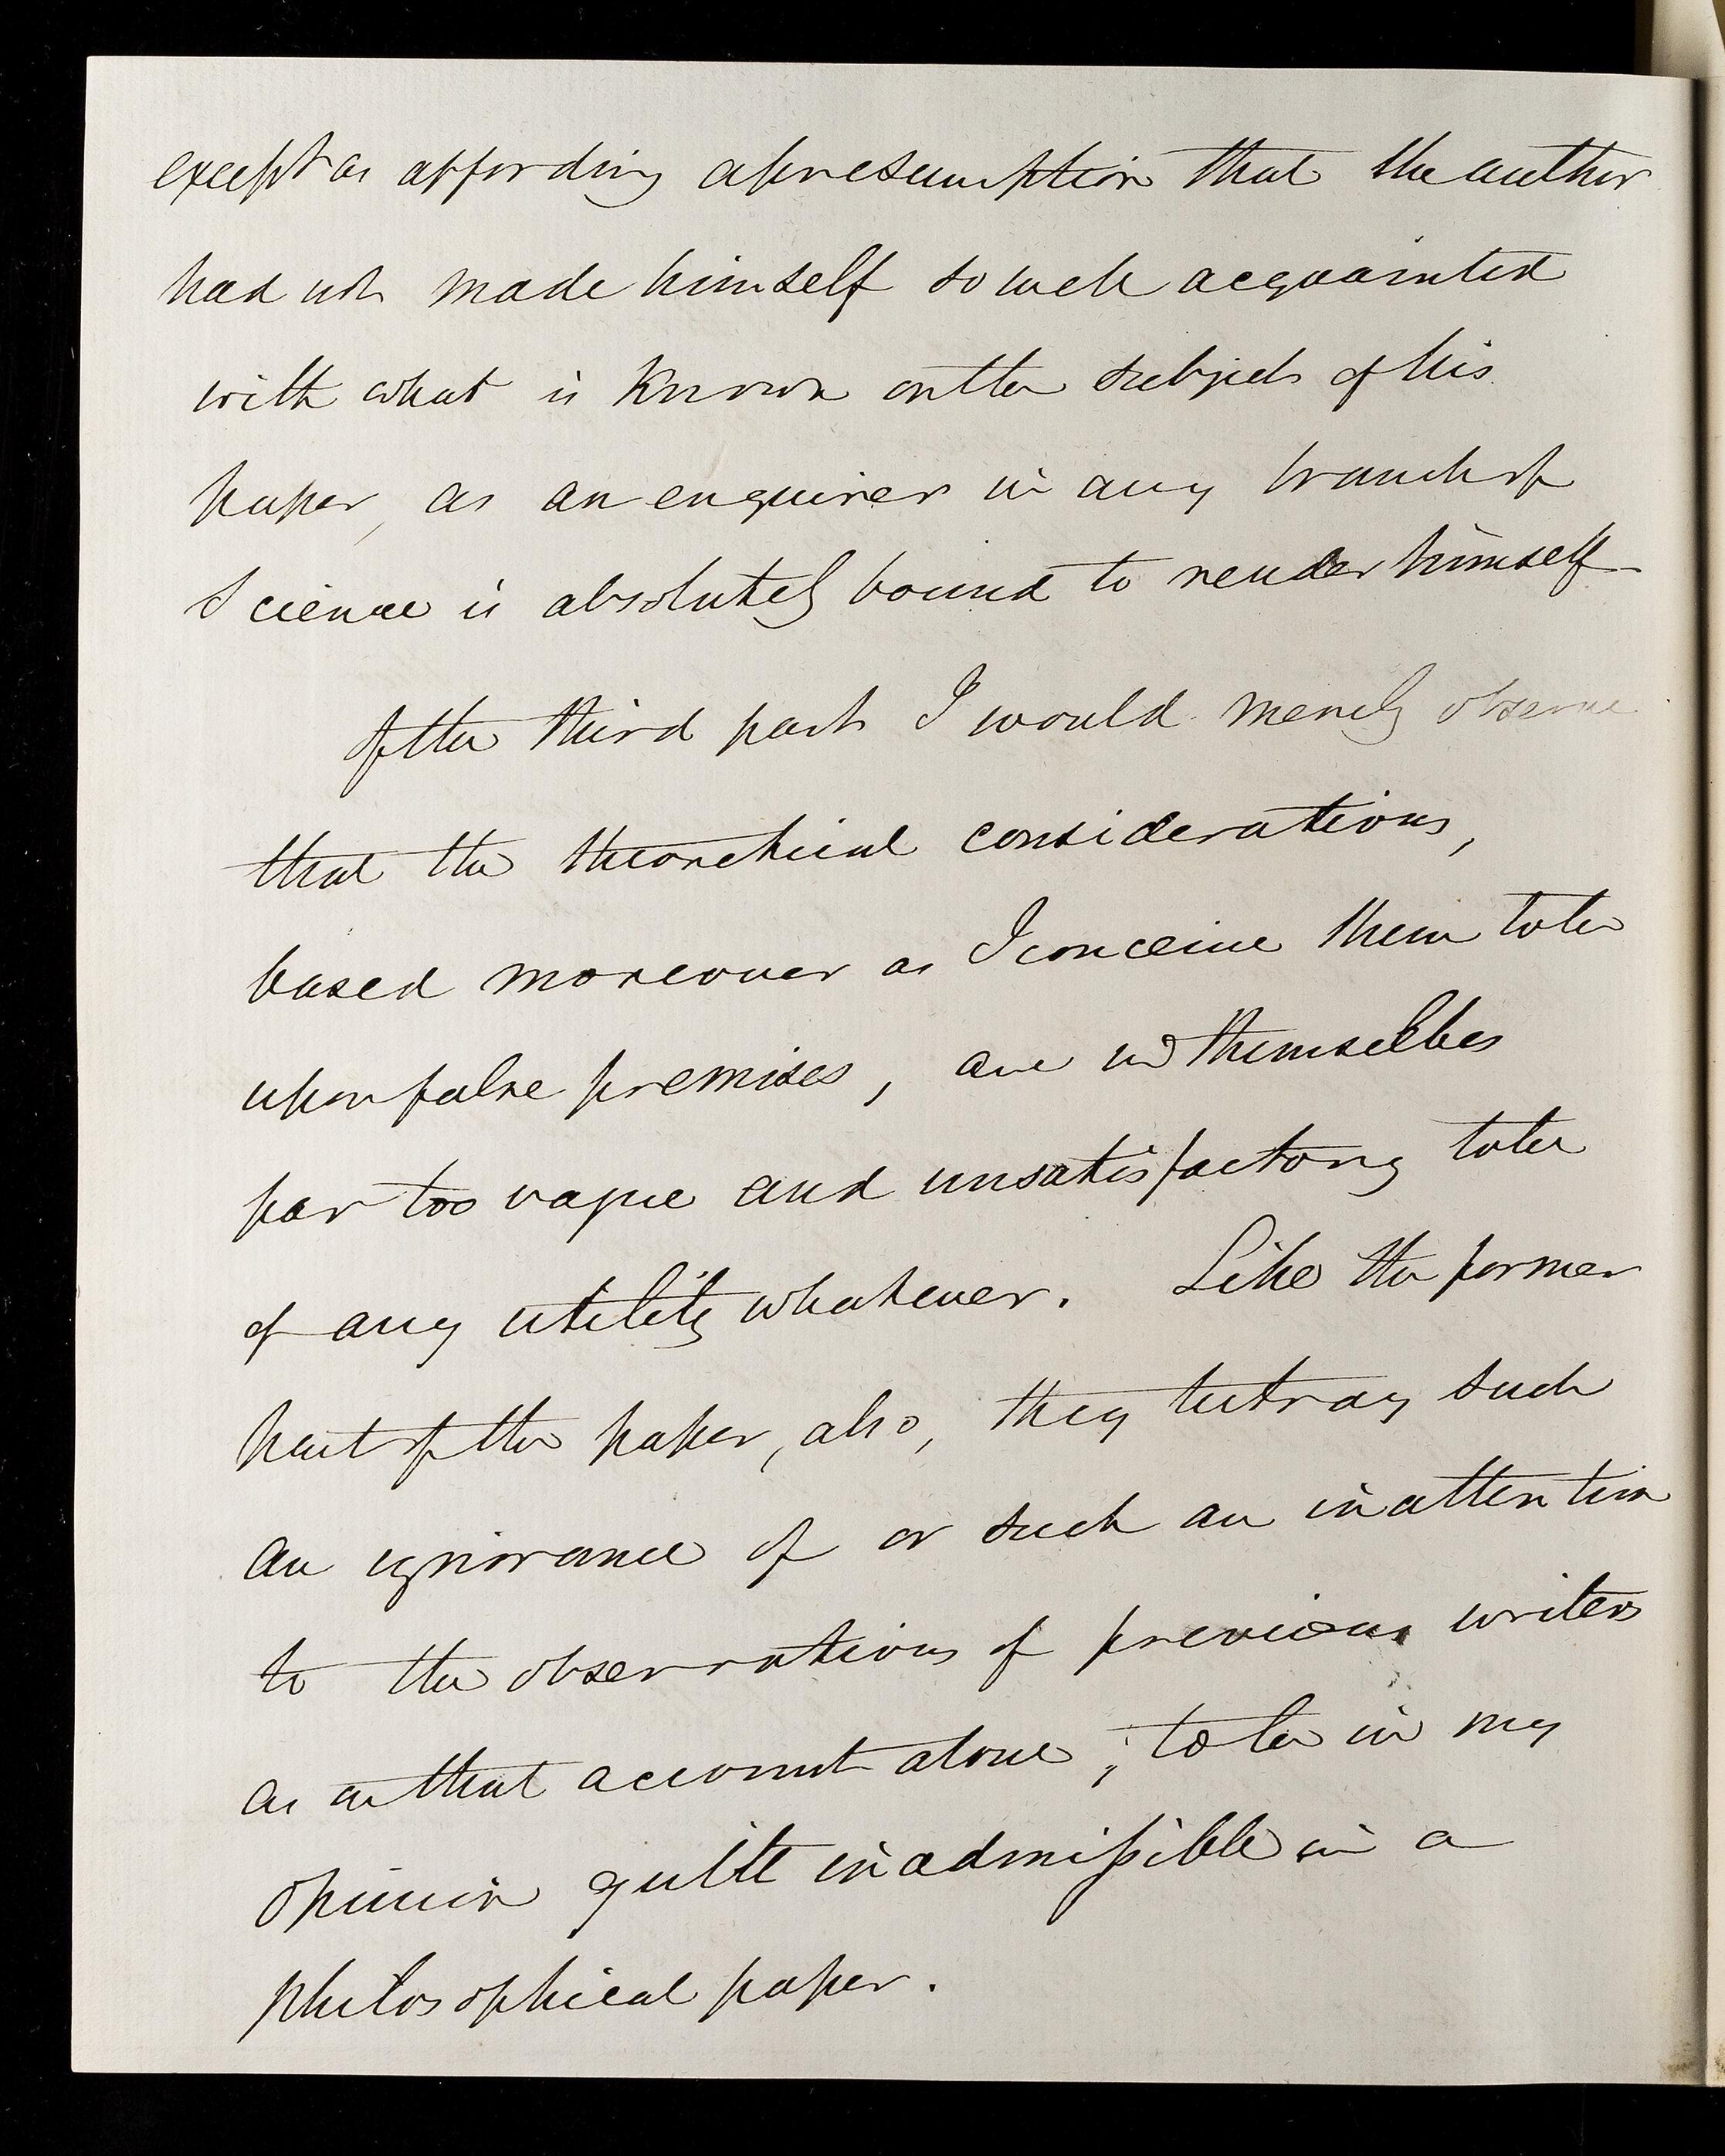 except as affording a presumption that the author
had not made himself so well acquainted
with what is known on the subject of his
paper, as an enquirer in any branch of
Science is absolutely bound to render himself
Of the third part I would merely observe
that the theoretical considerations,
based moreover as I conceive them to be
upon false premises, are in themselves
far too vague and unsatisfactory to be
of any utility whatever. Like the former
part of the paper, also, they betray such
an ignorance of or such an inattention
to the observations of previous writers
as on that account alone, to be in my
opinion quite inadmissible in a
philosophical paper.